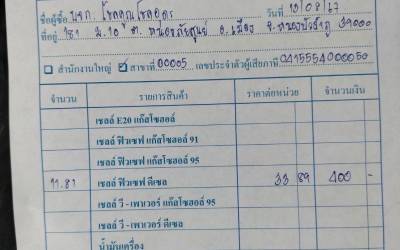 ชื่อผู้ซื้อ หจก. โชคคูณโชคอุดร วันที่ 13/08/67
ที่อยู่ 181 ม.10 ต. หนองภัยศูนย์ อ.เมือง จ.หนองบัวลำภู 39000
สำนักงานใหญ่ สาขาที่ 00005 เลขประจำตัวผู้เสียภาษี 0415554000050
จำนวน รายการสินค้า ราคาต่อหน่วย จำนวนเงิน
เชลล์ E20 แก๊สโซฮอล์
เชลล์ ฟิวเซฟ แก๊สโซฮอล์ 91
เชลล์ ฟิวเซฟ แก๊สโซฮอล์ 95
11.81 เชลล์ ฟิวเซฟ ดีเซล 33 89 400 -
เชลล์ วี - เพาเวอร์ แก๊สโซฮอล์ 95
เชลล์ วี - เพาเวอร์ ดีเซล
น้ำมันเครื่อง